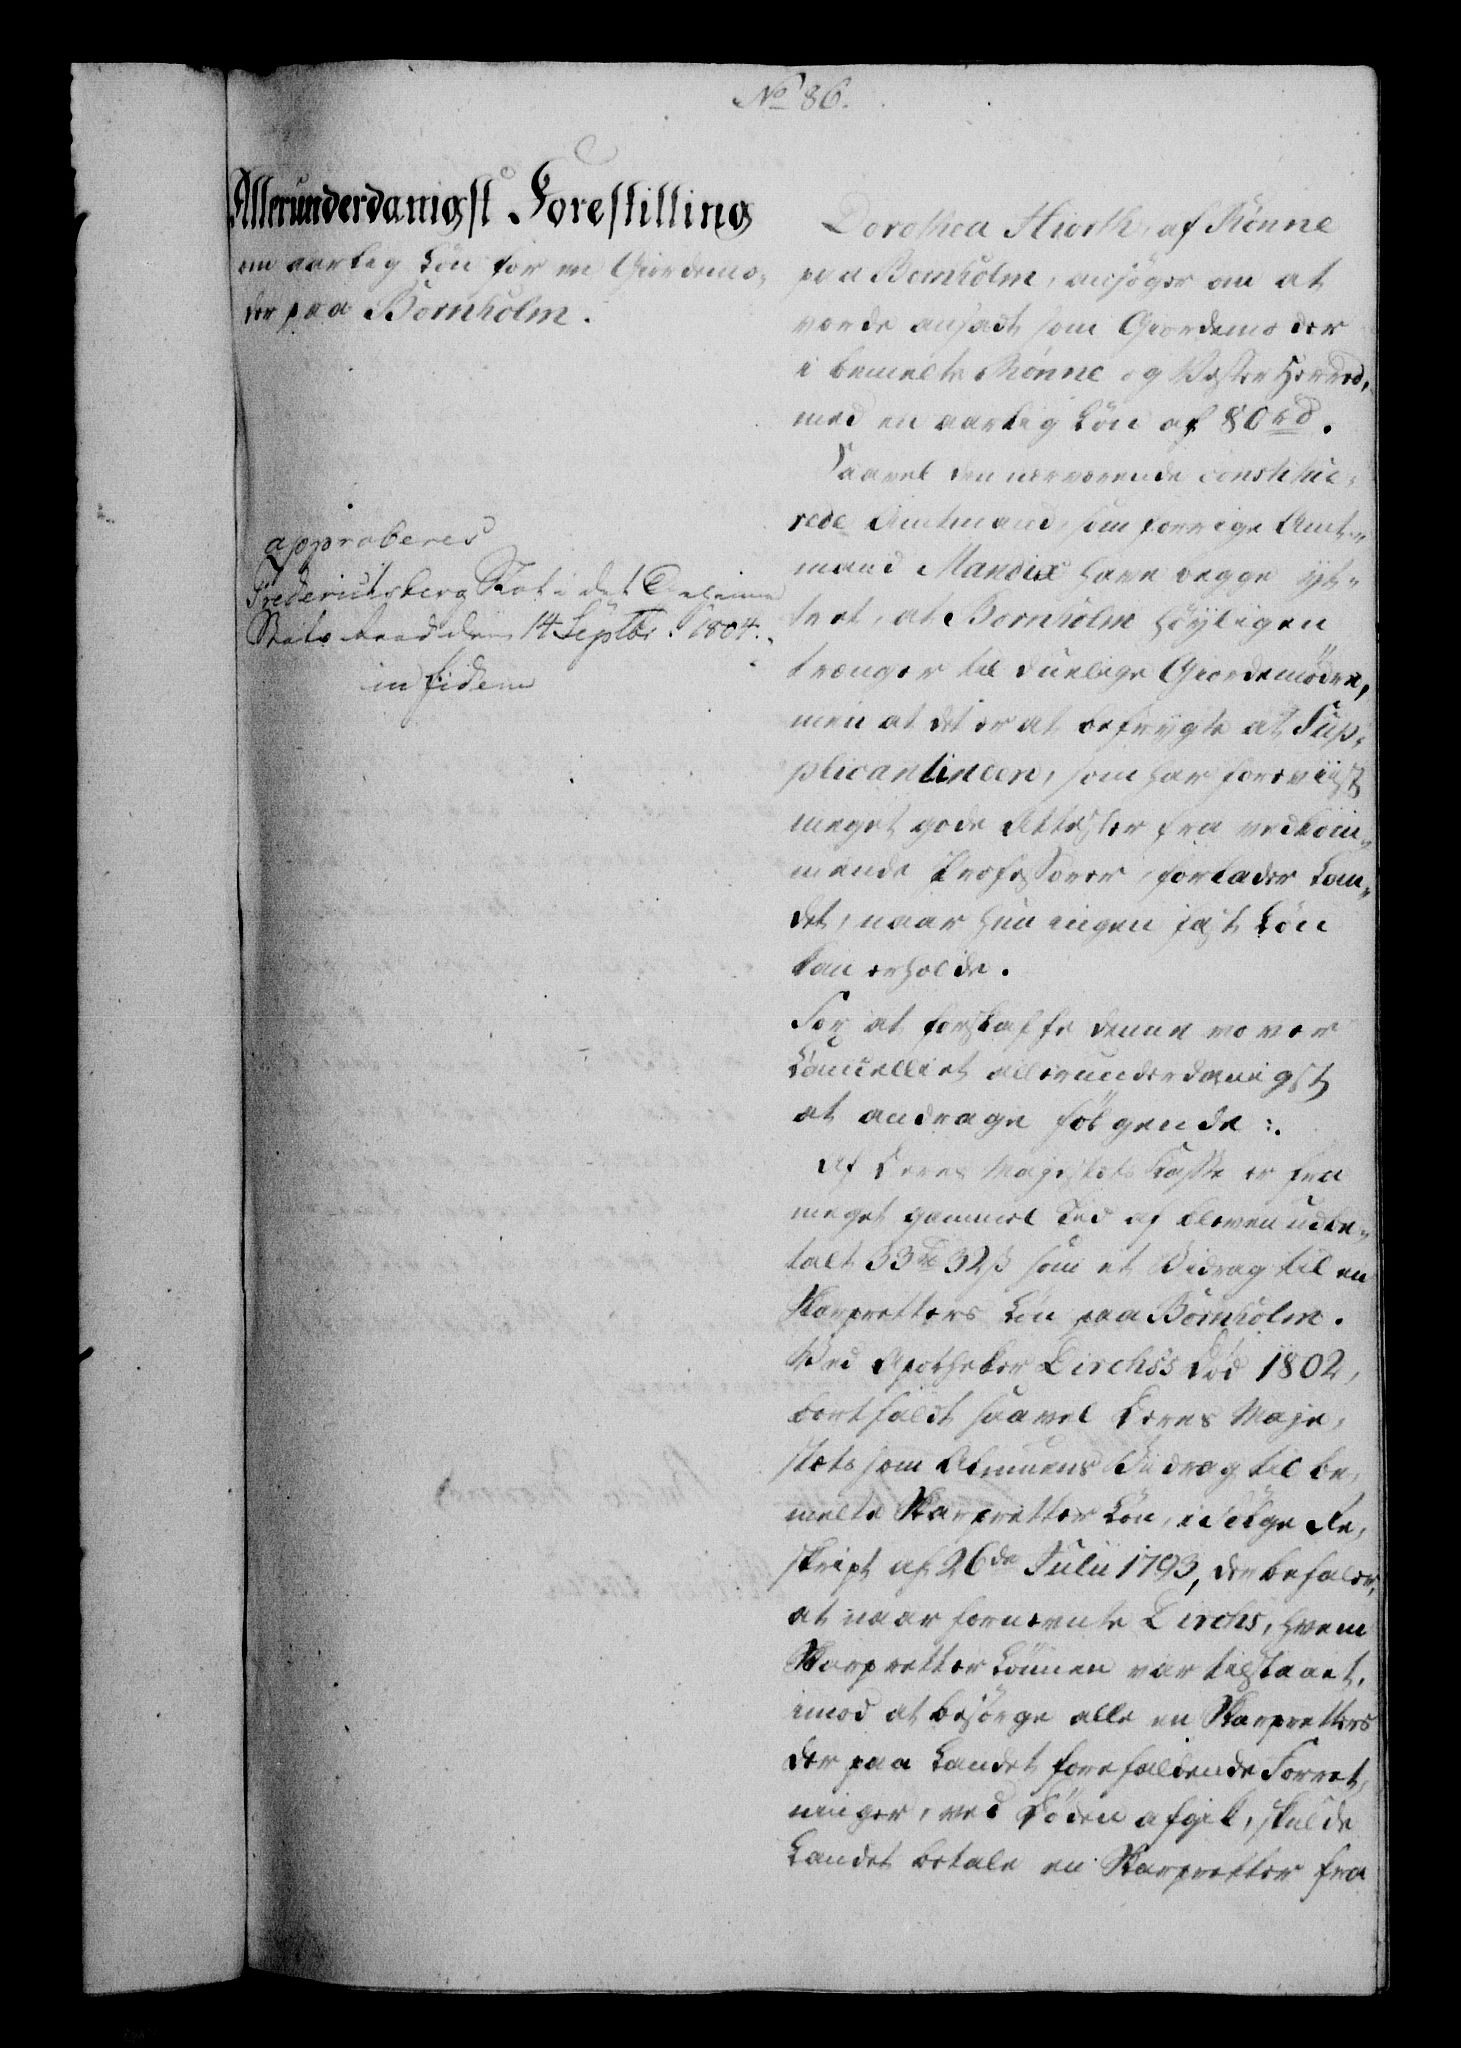 No 86.
Allerunderdanigst Forestilling
om aarlig Løn for en Giordemo-
der paa Bornholm.
approberes
Frederichsberg Slot i det Geheime
Stats Raad den 14 Septbr. 1804.
in fidem
Dorothea Hiorth, af Rønne
paa Bornholm, ansøger om at
vorde ansadt som Giordemoder
i bemelte Rønne og Vester Herred,
med en aarlig Løn af 80 rd.
Saavel den nærværende constitue-
rede Amtmand, som forrige Amt-
mand Mandix have begge ÿt-
tret, at Bornholm høÿligen
trænger til duelige Giordemødre,
men at det er at befrygte at Sup-
plicantinden, som har foreviist
meget gode Attester fra vedkom-
mende Professorer, forlader Lan-
det, naar hun ingen fast Løn
kan erholde.
For at forskaffe denne vover
Cancelliet allerunderdanigst
at andrage følgende:
Af Deres Majestets Kasse er fra
meget gammel Tid af bleven udbe-
talt 33 rd 32 s som et Bidrag til en
Skarpretters Løn paa Bornholm.
Ved Apotheker Dirchs's Død 1802,
bortfaldt saavel Deres Maje-
stets som Almuens Bidrag til be-
melte Skarpretter Løn, ifølge Re-
skript af 26de Julii 1793, der befaler,
at naar fornevnte Dirchs, hvem
Skarpretter Lønnen var tilstaaet,
imod at besørge alle en Skarpretters
der paa Landet forefaldende Forret-
ninger, ved Døden afgik, skulde
Landet betale en Skarpretter fra